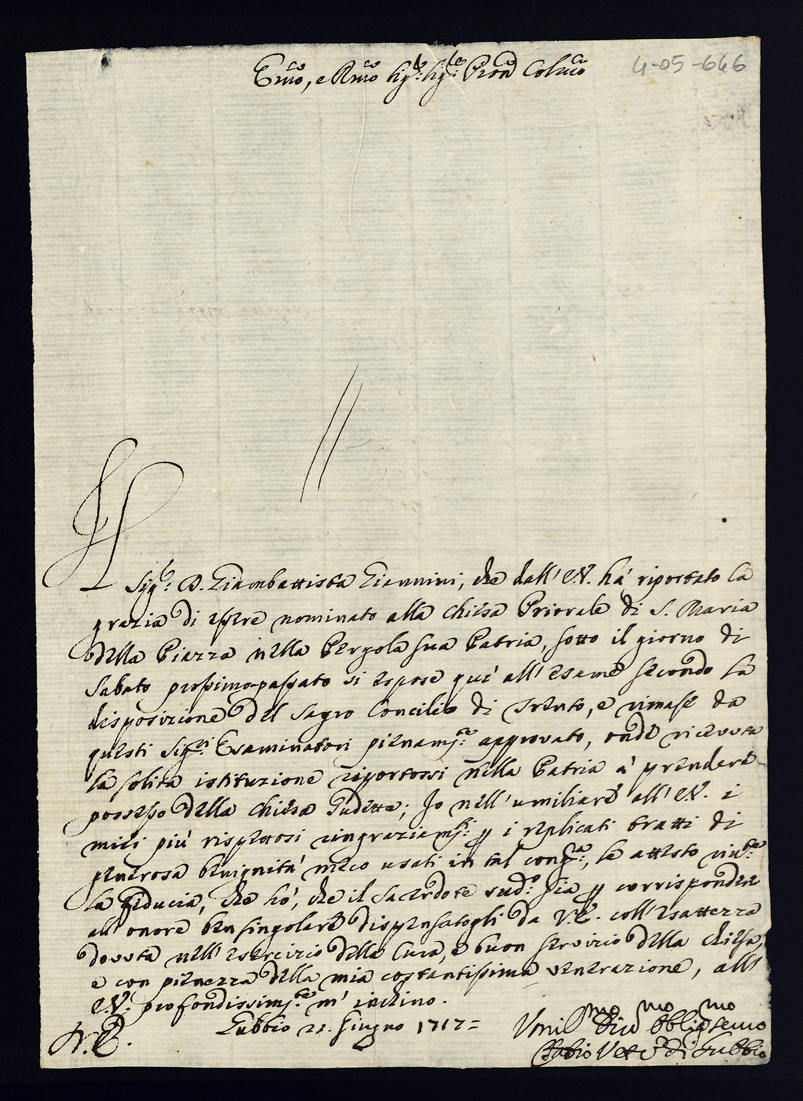 Emo, e Rmo Sigr. Sigr. Pron Colmo
4-05-646
Il Sigr: D. Giambattista Giannini, che dall'E.V. há riportato la
grazia di essere nominato alla Chiesa Priorale di S. Maria
della Piazza nella Pergola sua Patria, sotto il giorno di
Sabato prossimo passato si espose quì all'esame secondo la
disposizione del Sagro Concilio di Trento, e rimase da
questi Sigri: Esaminatori pienamte: approvato, onde ricevuta
la solita istituzione riportossi nella Patria à prendere
possesso della Chiesa sudetta; Io nell'umiliare all'E.V. i
miei più rispettosi ringraziamti: p i replicati tratti di
generosa benignità meco usati in tal
la fiducia, che hò, che il Sacerdote sudo: sia p corrispondere
all'onore ben singolare dispensatogli da V.E. coll'esattezza
dovuta nell'esercizio della Cura, e buon servizio della Chiesa,
e con pienezza della mia costantissima venerazione, all'
E.V. profondissimte: m'inclino.
Gubbio 21. Giugno 1717=
Umilmo Divmo Obbligmo Servo
Fabio Vesco di Gubbio